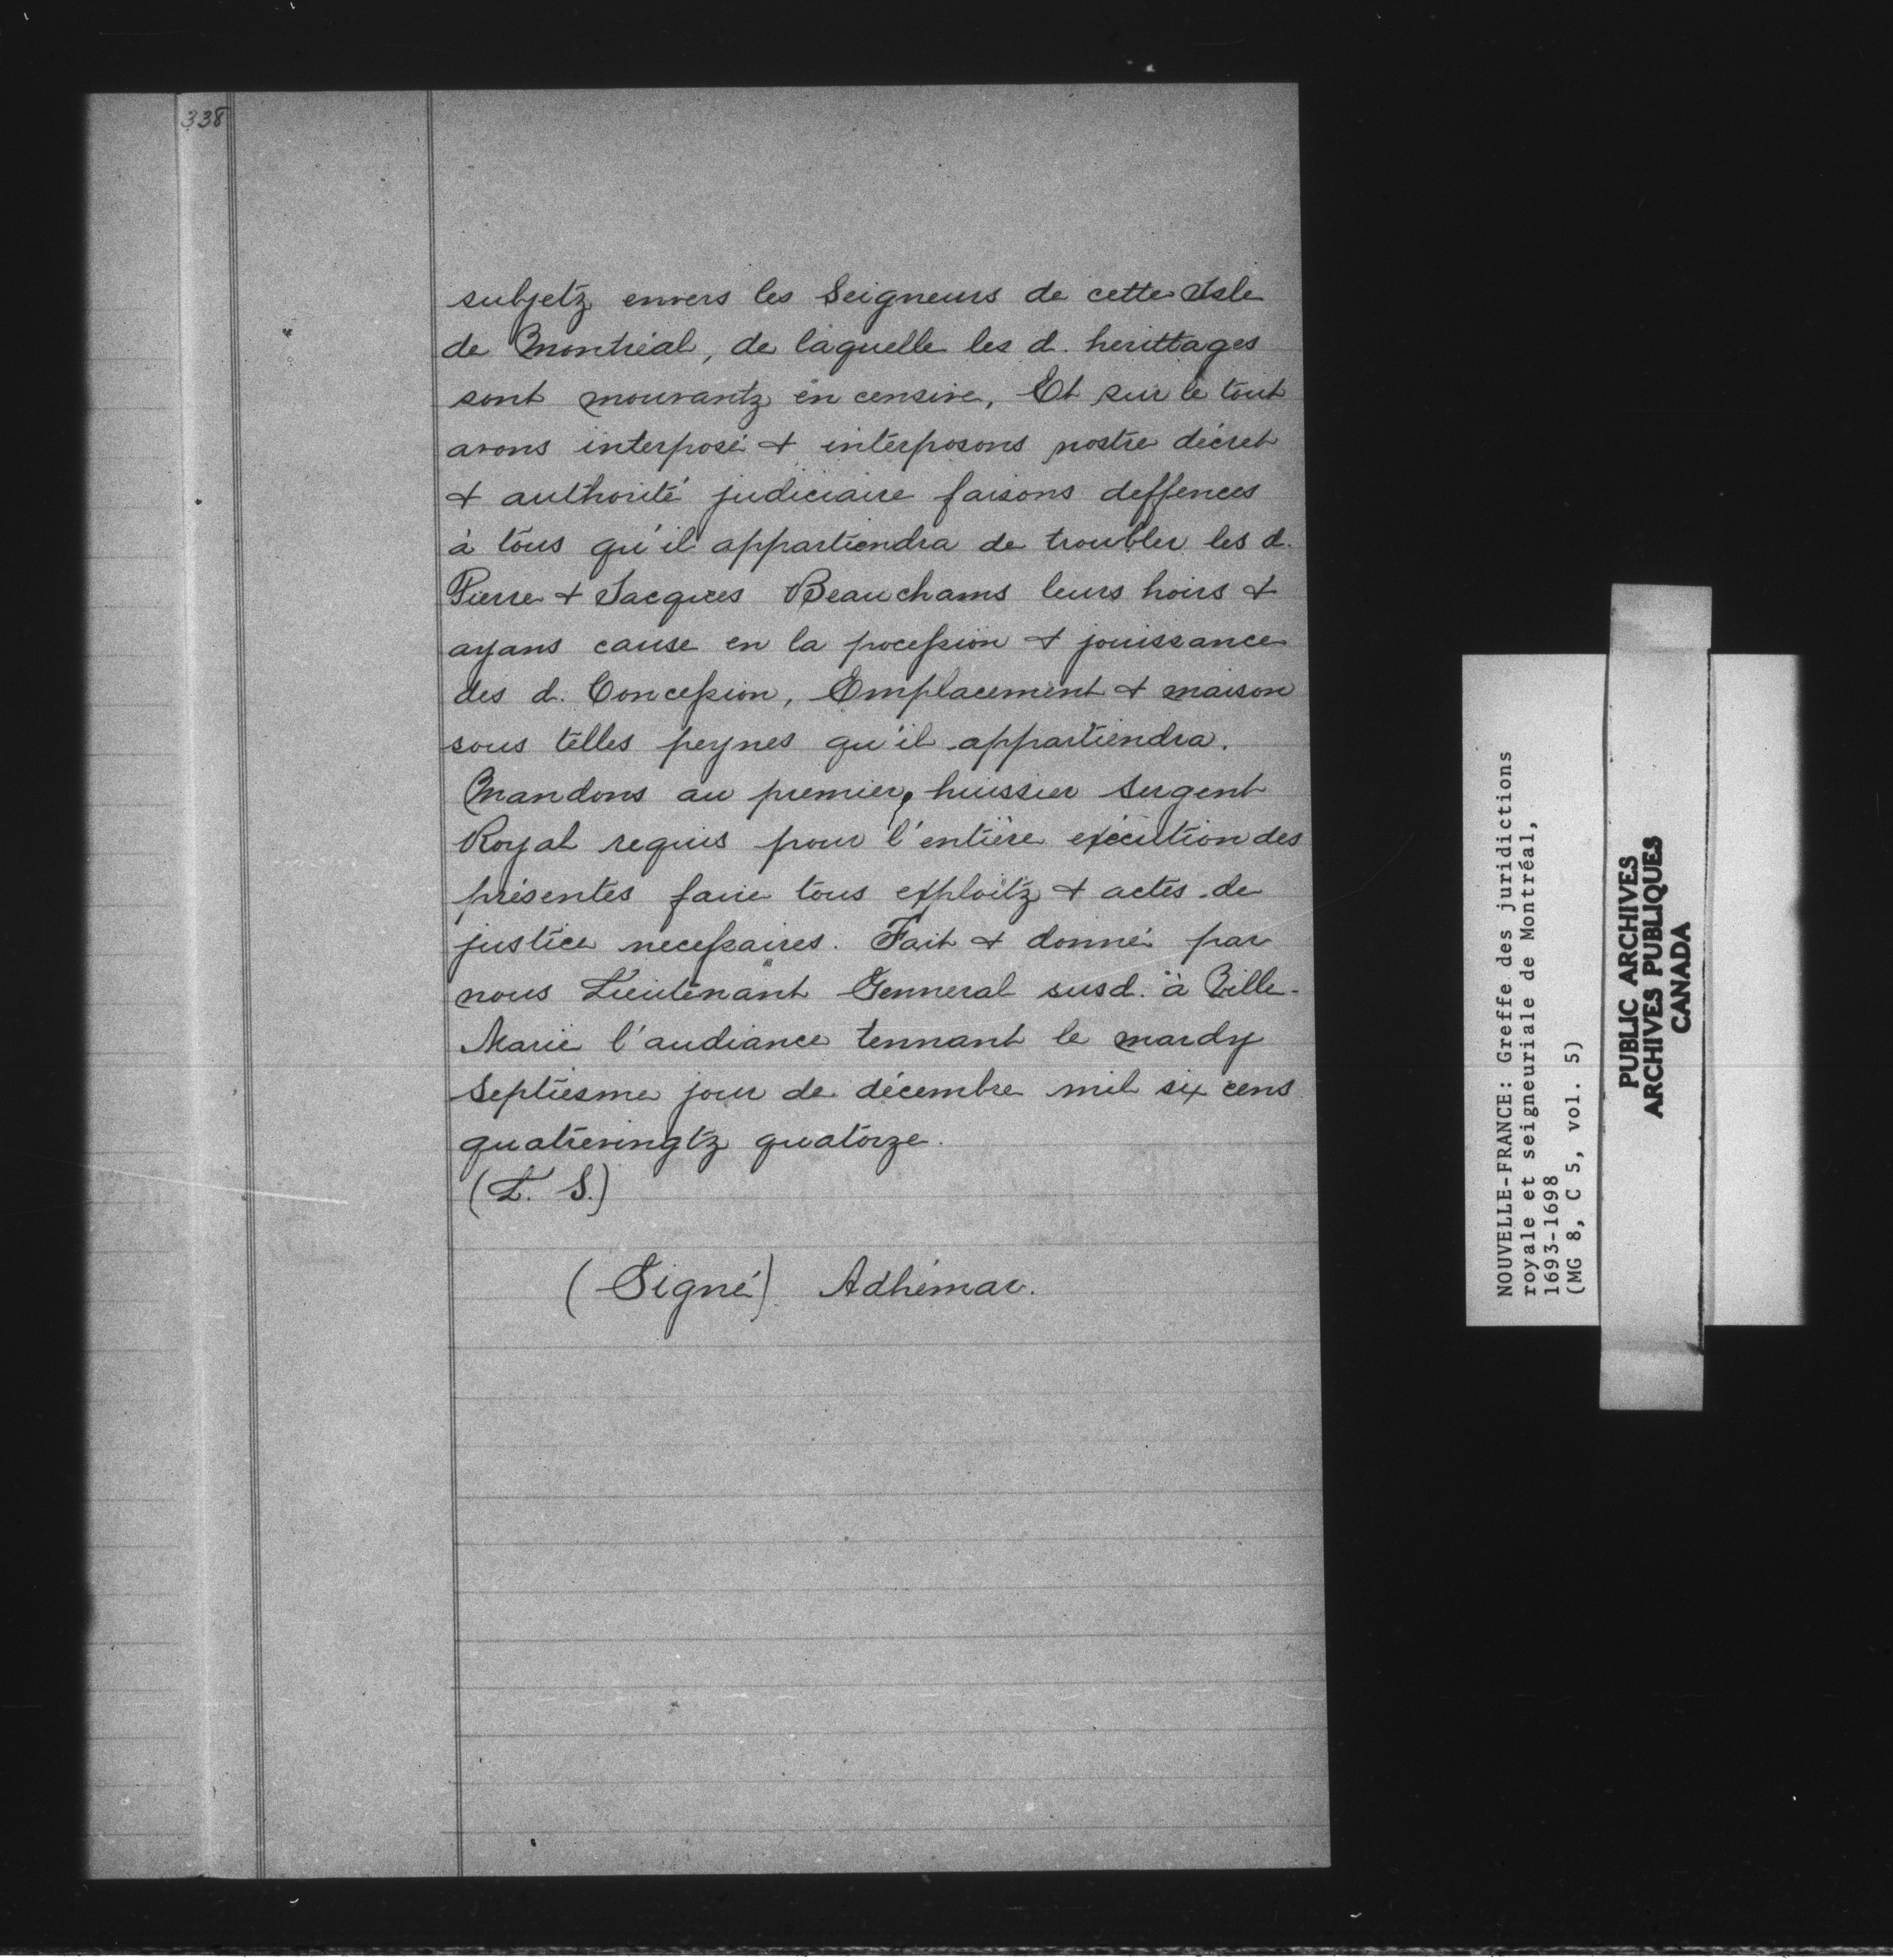 338
subjetz envers les Seigneurs de cette Isle
de Montréal, de laquelle les d. herittages
sont mouvantz en censive, Et sur le tout
avons interposé & interposons nostre décret
& authorité judiciaire faisons deffences
à tous qu'il appartiendra de troubler les d.
Pierre & Jacques Beauchams leurs hoirs &
ayans cause en la procession & jouissance
des d. Concession, Emplacement & maison
sous telles peynes qu'il appartiendra.
Mandons au premier, huissier Sergent
Royal requis pour l'entière exécution des
présentes faire tous exploitz & actes de
justice necessaires. Fait & donné par
nous Lieutenant Genneral susd. à Ville-
Marie l'audiance tennant le mardy
Septiesme jour de décembre mil six cens
quatrevingtz quatorze.
(L. S.)
(Signé) Adhémar.
NOUVELLE-FRANCE: Greffe des juridictions
royale et seigneuriale de Montréal,
1693-1698
(MG 8, C 5, vol. 5)
PUBLIC ARCHIVES
ARCHIVES PUBLIQUES
CANADA